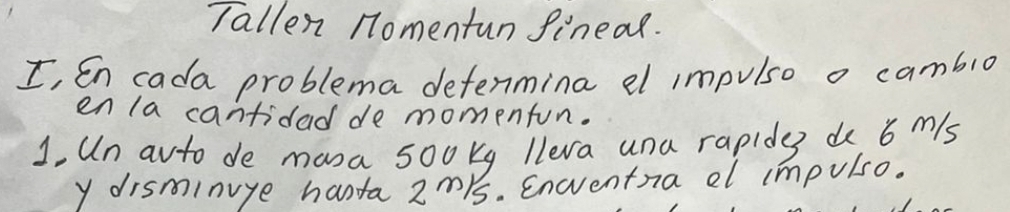 Taller Momentun lineal.
I, En cada problema determina el impulso o cambio
en la cantidad de momentun.
1. Un auto de masa 500 Kg lleva una rapidez de 6 m/s
y disminuye hasta 2 m/s. Encuentra el impulso.